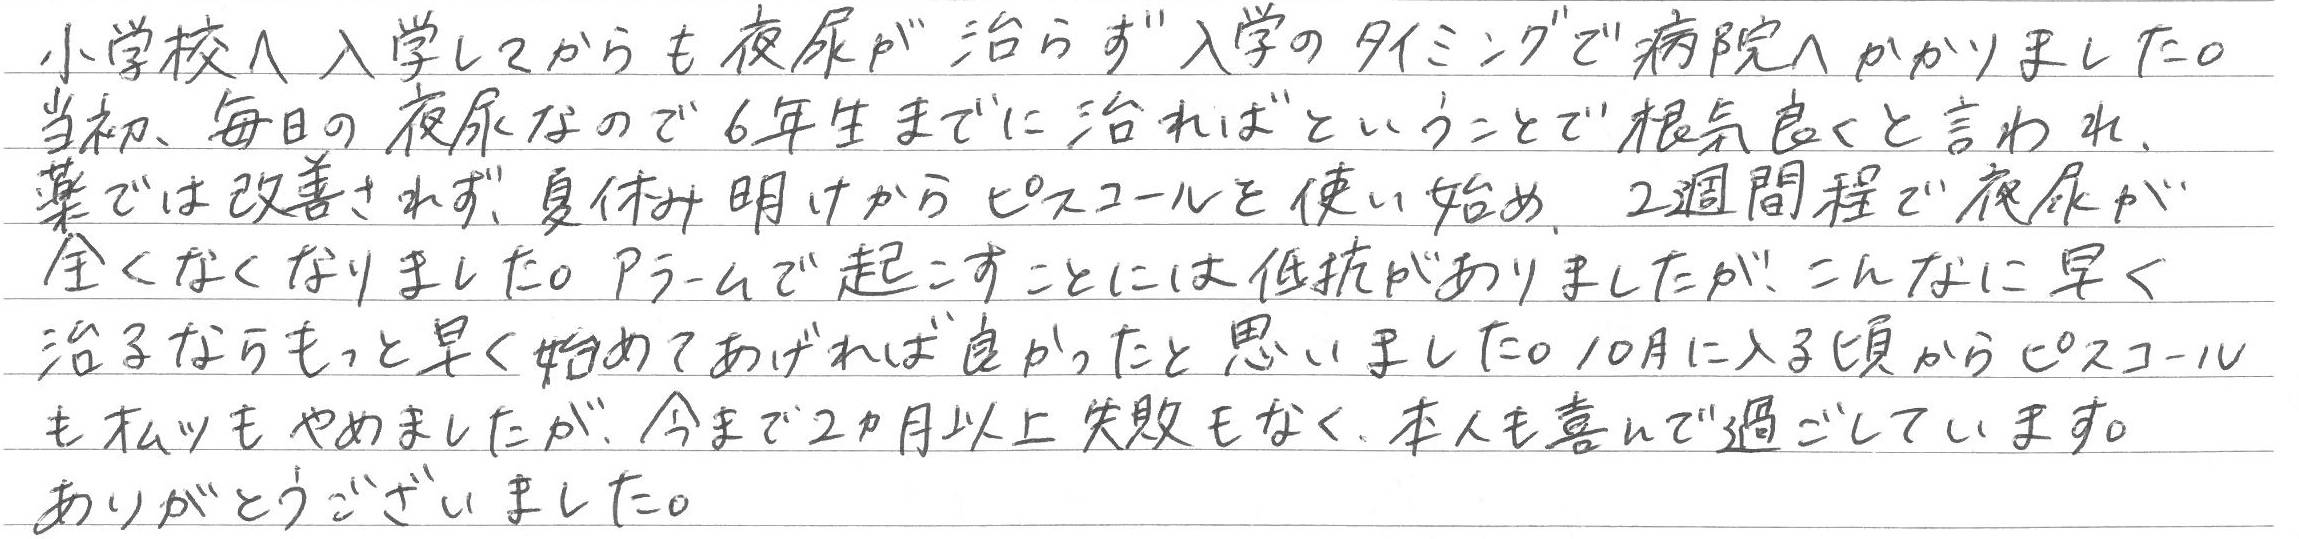 小学校へ入学してからも夜尿が治らず入学のタイミングで病院へかかりました。
当初、毎日の夜尿なので6年生までに治ればということで根気良くと言われ、
薬では改善されず、夏休み明けからピスコールを使い始め、2週間程で夜尿が
全くなくなりました。アラームで起こすことには低抗がありましたが、こんなに早く
治るならもっと早く始めてあげれば良かったと思いました。10月に入る頃からピスコール
もオムツもやめましたが、今まで2カ月以上失敗もなく、本人も喜んで過ごしています。
ありがとうございました。